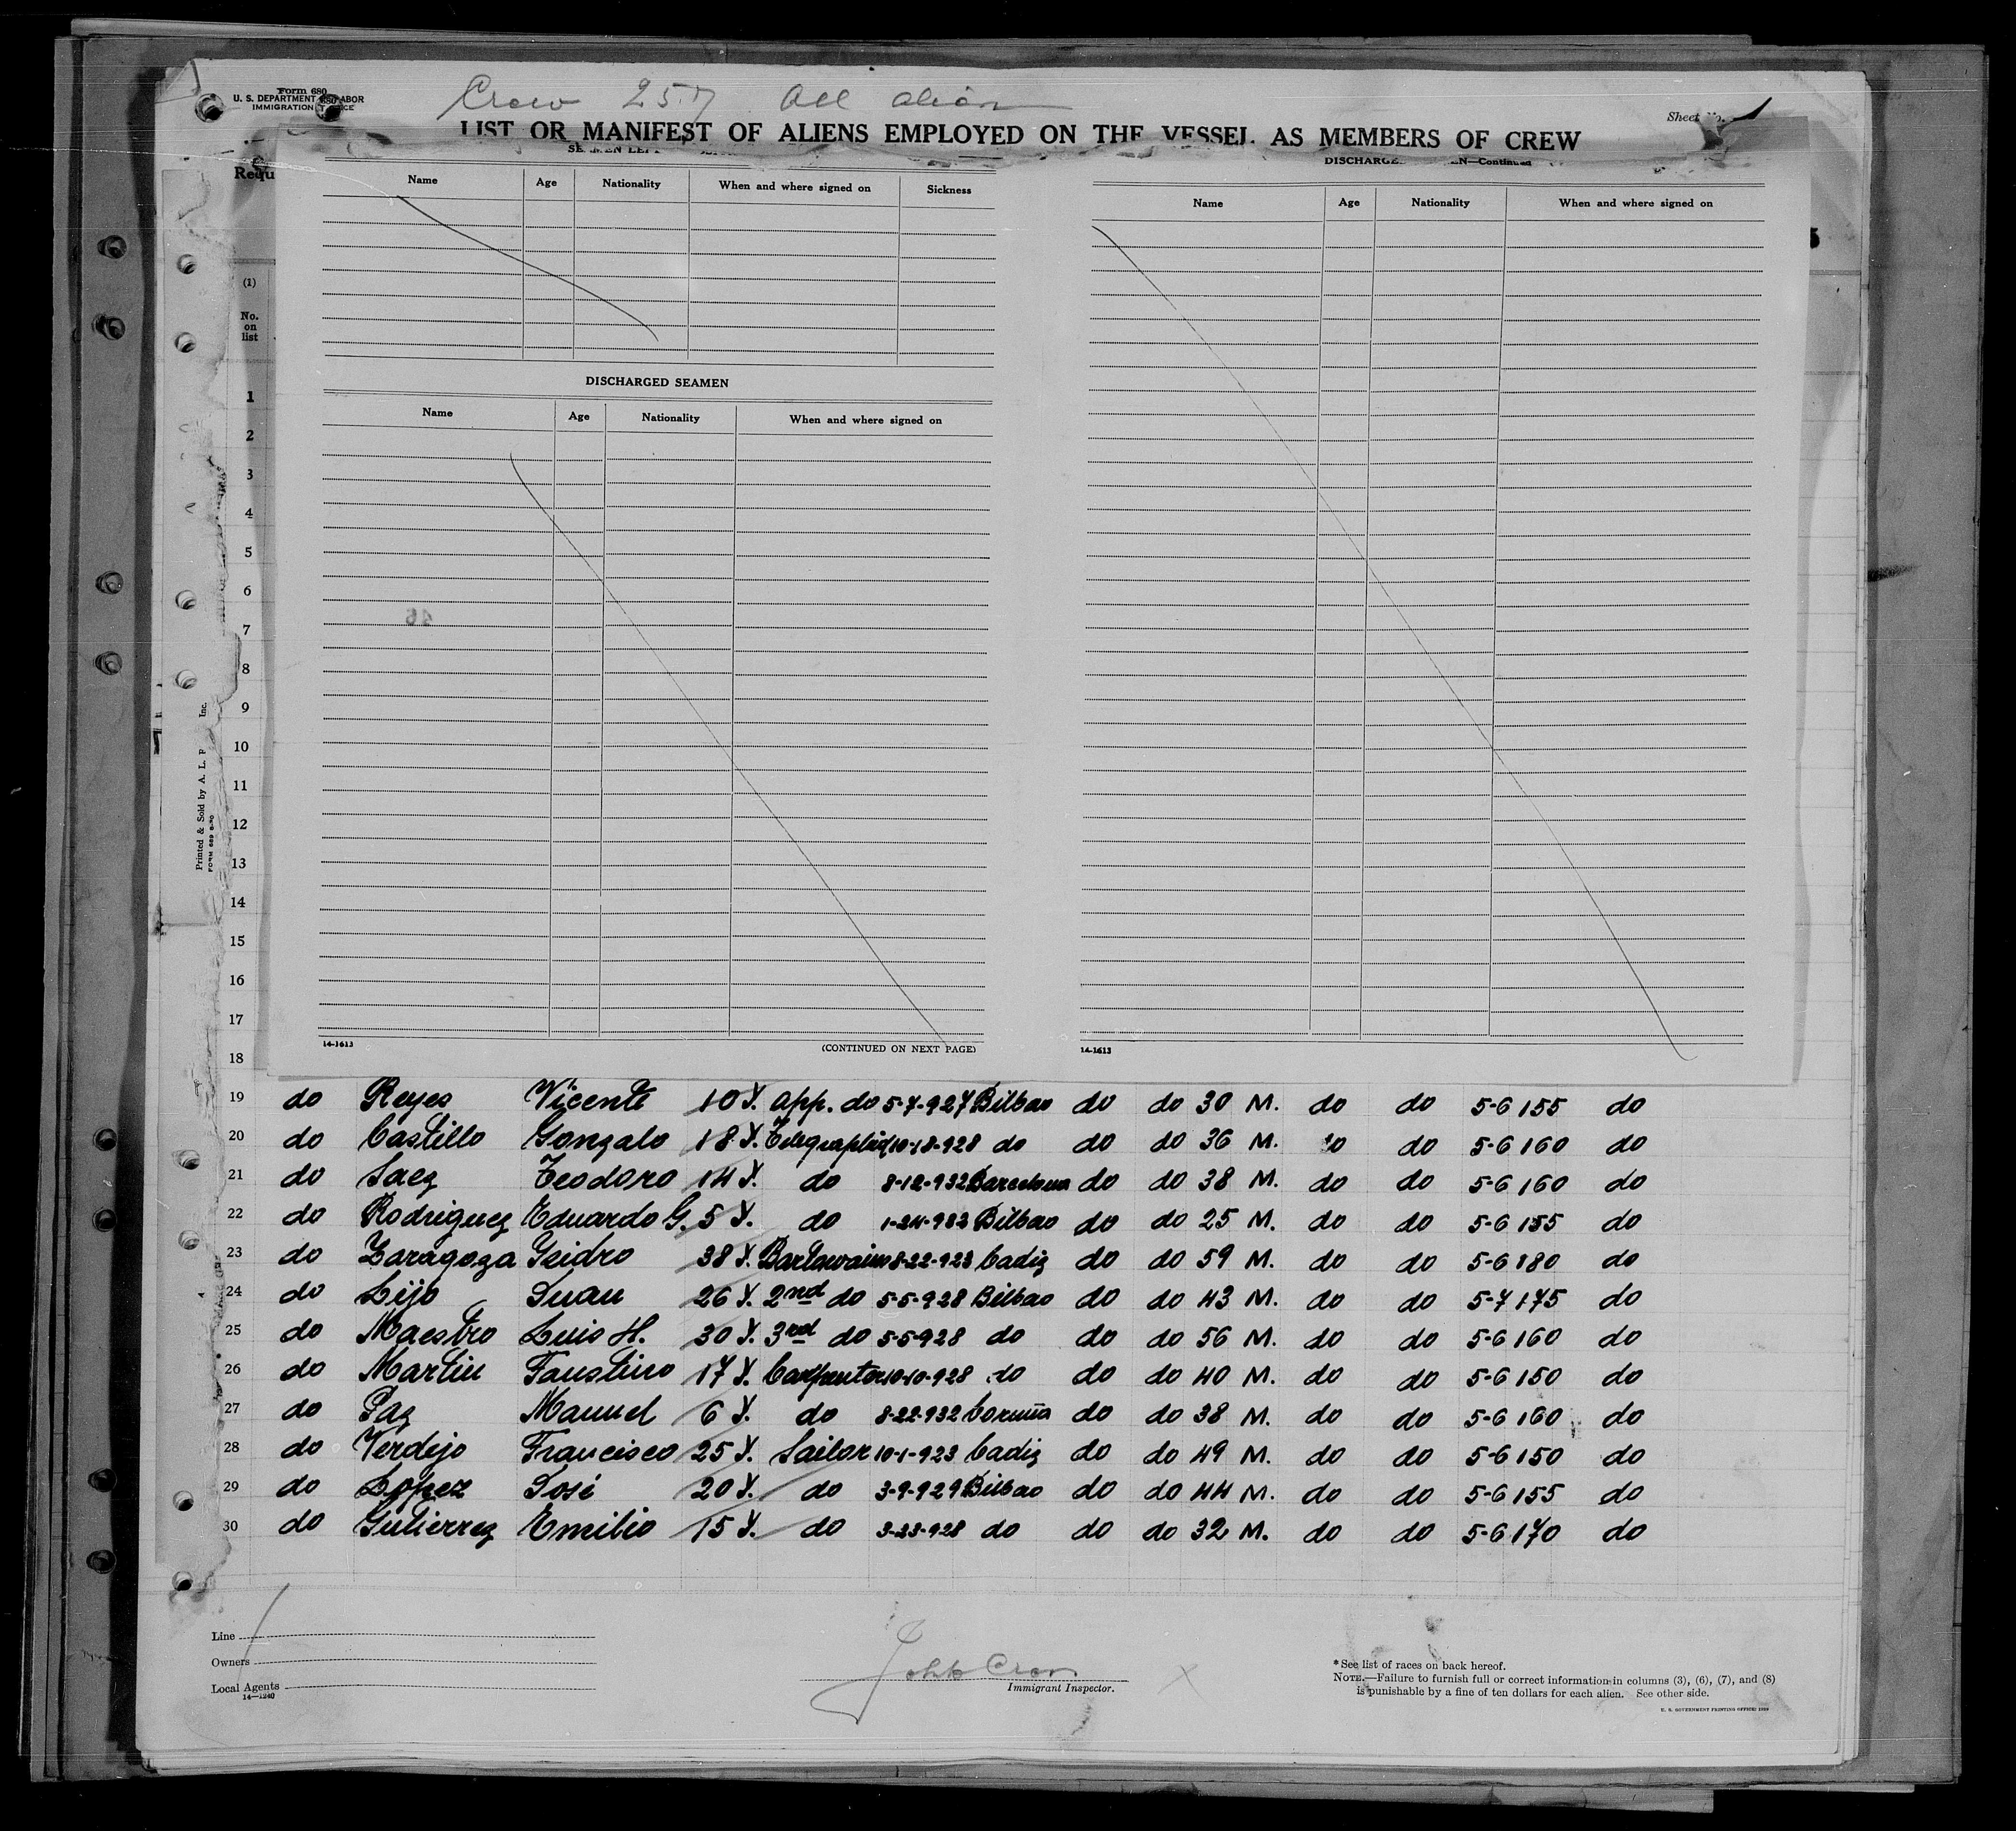 Form 680
U. S. DEPARTMENT LABOR
IMMIGRATION
Crew 257 All alien
Sheet No. 1
LIST OR MANIFEST OF ALIENS EMPLOYED ON THE VESSEL AS MEMBERS OF CREW
DISCHARGE EN—Continued
Requ
Name Age Nationality When and where signed on Sickness
Name Age Nationality When and where signed on
(1)
No.
on
list
DISCHARGED SEAMEN
Name Age Nationality When and where signed on
1
2
3
4
5
6
7
8
9
10
11
12
13
14
15
16
17
18
Printed & Sold by A. L. P Inc.
14-1613 (CONTINUED ON NEXT PAGE) 14-1613
19 do Reyes Vicente 10 Y. app. do 5-7-927 Bilbao do do 30 M. do do 5-6 155 do
20 do Castillo Gonzalo 18 Y. 10-18-928 do do do 36 M. do do 5-6 160 do
21 do Saez Teodoro 14 Y. do 8-12-932 Barcelona do do 38 M. do do 5-6 160 do
22 do Rodriguez Eduardo G. 5 Y. do 1-24-933 Bilbao do do 25 M. do do 5-6 155 do
23 do Zaragoza Isidro 38 Y. 8-22-923 Cadiz do do 59 M. do do 5-6 180 do
24 do Lijo Juan 26 Y. 2nd do 5-5-928 Bilbao do do 43 M. do do 5-7 175 do
25 do Maestro Luis H. 30 Y. 3rd do 5-5-928 do do do 56 M. do do 5-6 160 do
26 do Martin Faustino 17 Y. Carpenter 10-10-928 do do do 40 M. do do 5-6 150 do
27 do Paz Manuel 6 Y. do 8-22-932 Coruña do do 38 M. do do 5-6 160 do
28 do Verdejo Francisco 25 Y. Sailor 10-1-923 Cadiz do do 49 M. do do 5-6 150 do
29 do Lopez José 20 Y. do 3-9-929 Bilbao do do 44 M. do do 5-6 155 do
30 do Gutierrez Emilio 15 Y. do 3-23-928 do do do 32 M. do do 5-6 170 do
Line
Owners
Local Agents
14—1240
John
Immigrant Inspector.
* See list of races on back hereof.
NOTE.—Failure to furnish full or correct information in columns (3), (6), (7), and (8)
is punishable by a fine of ten dollars for each alien. See other side.